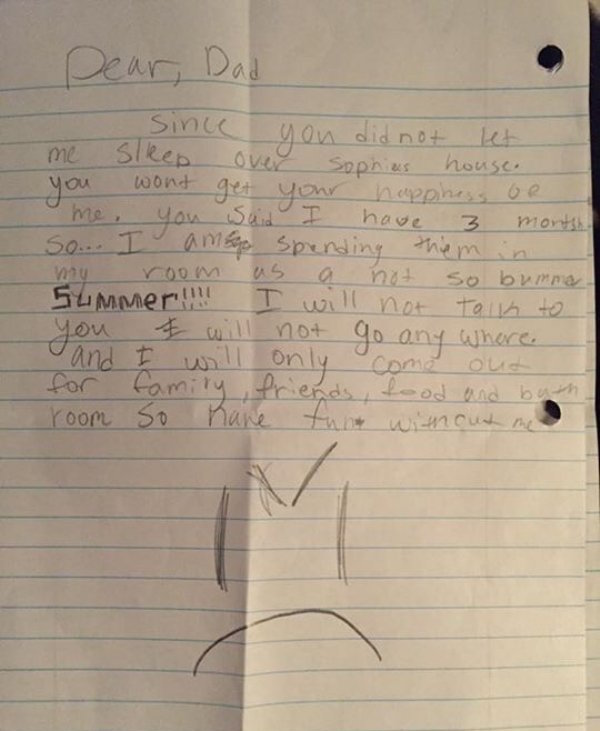 Dear, Dad
Since you did not let
me sleep over Sophias house.
you wont get your happness of
me. you said I have 3 months
So... I am spending them in
my room as a not so bumma
Summer!!!! I will not talk to
you I will not go any where.
and I will only come out
for family, friends, food and bath
room So have fun without me